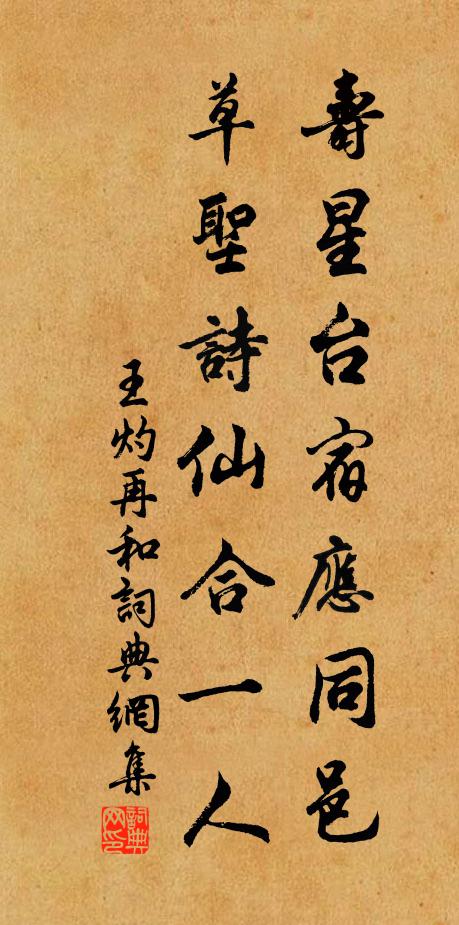 壽星台宿應同邑
草聖詩仙合一人
王灼再和詞典網集
詞典网印